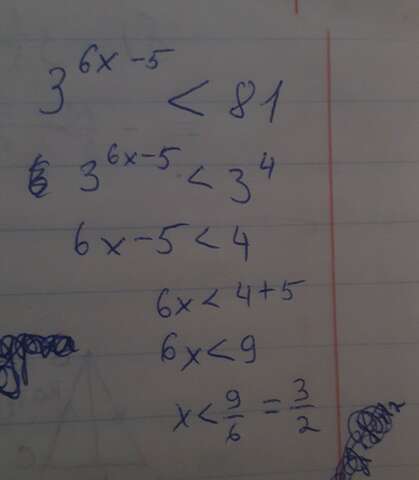 3^{6x-5} < 81
3^{6x-5} < 3^4
6x-5<4
6x<4+5
6x<9
x<\frac{9}{6}=\frac{3}{2}